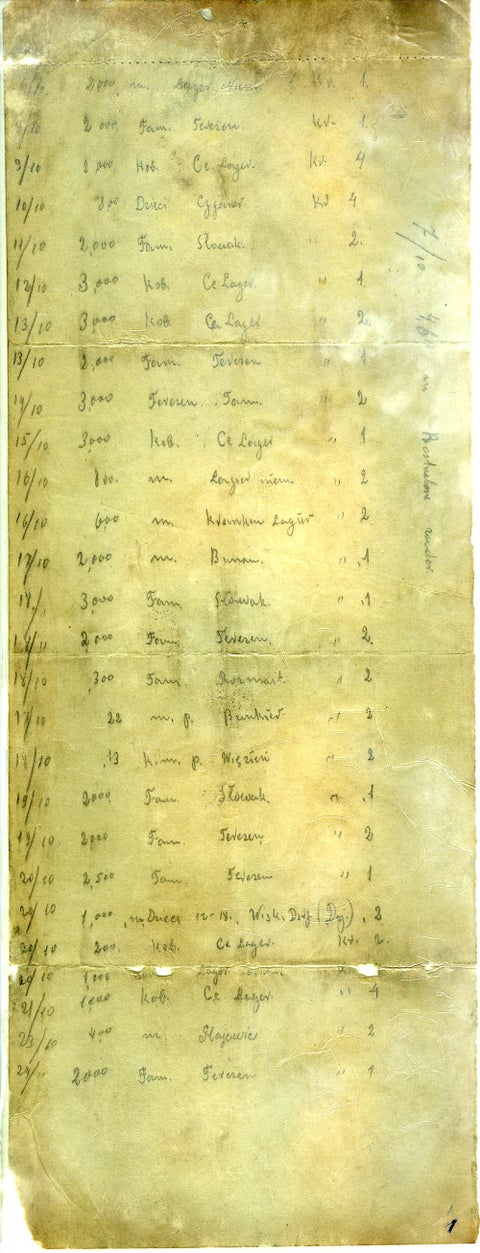 /10 2,000 m. Lager Kr. 1.
/10 2 000 Fam. Terezen. Kr. 1.
9/10 8,000 Kob. Ce Lager. Kr. 4
10/10 800 Dzieci Cyganów Kr 4
11/10 2,000 Fam. Słowak. " 2.
12/10 3,000 Kob. Ce Lager. " 1.
13/10 3,000 Kob Ce Lager " 2.
13/10 2,000 Fam. Terezen " 1
14/10 3,000 Terezen. Fam. " 2
15/10 3,000 Kob. Ce Lager " 1
16/10 800. m. niem " 2
16/10 600 m. Kranken Lager " 2
17/10 2,000 m. Bunau. " 1
18./, 3,000 Fam Słowak. " 1
/10 2,000 Fam Terezen. " 2.
18/10 ,300 Fam. " 2
17/10 22 m. p. Bunkier. " 2
18/10 ,13 K. m. p. " 2
19/10 2000 Fam. Słowak. " 1
19/10 2000 Fam. Terezen " 2
20/10 2,500 Fam Terezen " 1
20/10 1,000 m Dzieci 12-18. , 2
20/10 200. Kob. Ce Lager. Kr. 2.
20/10 1,000 Lager
21/10 1,000 Kob. Ce Lager. " 4
23/10 400 m. " 2
24/" 2000 Fam. Terezen " 1
7/10 m
1